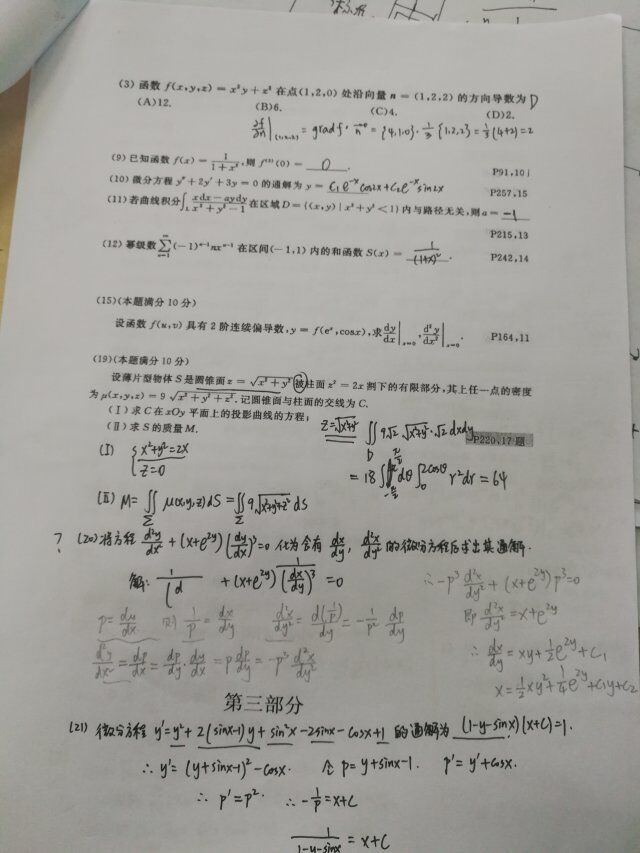 (3) 函数 f(x,y,z) = x²y + z² 在点(1,2,0) 处沿向量 n = (1,2,2) 的方向导数为 D
(A)12. (B)6. (C)4. (D)2.
∂f/∂n|(1,2,0) = gradf · n⁰ = {4,1,0} · 1/3 {1,2,2} = 1/3 (4+2) = 2
(9) 已知函数 f(x) = 1/(1+x²), 则 f⁽³⁾(0) = 0 . P91,10
(10) 微分方程 y″ + 2y′ + 3y = 0 的通解为 y = C₁e^-x cos2x + C₂e^-x sin2x P257,15
(11) 若曲线积分∫L (xdx − aydy)/(x² + y² − 1) 在区域 D = {(x,y) | x² + y² < 1} 内与路径无关, 则 a = -1
P215,13
(12) 幂级数 ∑n=1^∞ (−1)^n−1 nx^n−1 在区间(−1,1) 内的和函数 S(x) = 1/(1+x)² . P242,14
(15)(本题满分 10 分)
设函数 f(u,v) 具有 2 阶连续偏导数, y = f(e^x, cosx), 求 dy/dx|x=0, d²y/dx²|x=0. P164,11
(19)(本题满分 10 分)
设薄片型物体 S 是圆锥面 z = √(x² + y²) 被柱面 z² = 2x 割下的有限部分, 其上任一点的密度
为 μ(x,y,z) = 9√(x² + y² + z²). 记圆锥面与柱面的交线为 C.
(Ⅰ) 求 C 在 xOy 平面上的投影曲线的方程;
(Ⅱ) 求 S 的质量 M.
z=√(x²+y²) ∬D 9√2 √(x²+y²) · √2 dxdy
P220,17 题
(I) { x²+y²=2x
z=0
= 18 ∫-π/2^π/2 dθ ∫0^2cosθ r²dr = 64
(Ⅱ) M = ∬Σ μ(x,y,z) dS = ∬Σ 9√(x²+y²+z²) dS
? (20) 将方程 d²y/dx² + (x+e^2y)(dy/dx)³=0 化为含有 dx/dy, d²x/dy² 的微分方程后求出其通解.
解: 1/(d + (x+e^2y) 1/(dx/dy)³ = 0
∴ -p³ d²x/dy² + (x+e^2y) p³=0
p = dy/dx 则 1/p = dx/dy d²x/dy² = d(1/p)/dy = -1/p² dp/dy
即 d²x/dy² = x+e^2y
d²y/dx² = dp/dx = dp/dy · dy/dx = p dp/dy = -p³ d²x/dy²
∴ dx/dy = xy + 1/2 e^2y + C₁
x = 1/2 xy² + 1/4 e^2y + C₁y + C₂
第三部分
(21) 微分方程 y′=y²+2(sinx-1)y+sin²x-2sinx-cosx+1 的通解为 (1-y-sinx)(x+C)=1.
∴ y′=(y+sinx-1)²-cosx. 令 p=y+sinx-1. p′=y′+cosx.
∴ p′=p². ∴ -1/p=x+C
1/(1-y-sinx) = x+C